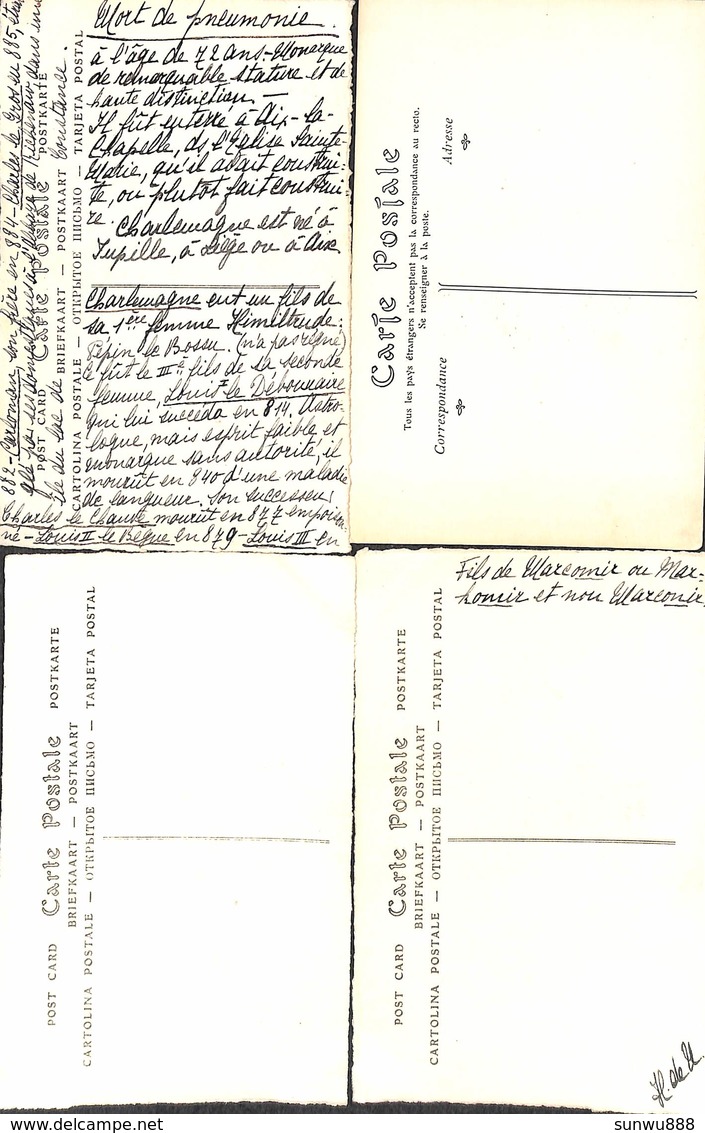 Mort de pneumonie.
à l'âge de 72 ans. Monarque
de remarquable stature et de
haute distinction. —
Il fût enterré à Aix-la-
Chapelle, ds l'Eglise Sainte-
Marie, qu'il avait construi-
te, ou plutôt fait construi-
re. Charlemagne est né à
Jupille, à Liège ou à Aix
Charlemagne eut un fils de
sa 1ère femme Himiltrude:
Pépin le Bossu. (n'a pas régné)
Ce fût le IIIe fils de sa seconde
femme, Louis I le Débonnaire
qui lui succéda en 814. Astro-
logue, mais esprit faible et
monarque sans autorité, il
mourût en 840 d'une maladie
de langueur. Son successeur
Charles le Chauve mourût en 877 empoison
né - Louis II le Bègue en 879 - Louis III en
882 - Carloman, son frère en 884 - Charles le Gros en 885,
île du lac de Constance.
POST CARD Carte Postale POSTKARTE
BRIEFKAART — POSTKAART
CARTOLINA POSTALE — ОТКРЫТОЕ ПИСЬМО — TARJETA POSTAL
Carte Postale
Tous les pays étrangers n'acceptent pas la correspondance au recto.
Se renseigner à la poste.
Correspondance
Adresse
POST CARD Carte Postale POSTKARTE
BRIEFKAART — POSTKAART
CARTOLINA POSTALE — ОТКРЫТОЕ ПИСЬМО — TARJETA POSTAL
Fils de Marcomir ou Mar-
homir et non Marconir
POST CARD Carte Postale POSTKARTE
BRIEFKAART — POSTKAART
CARTOLINA POSTALE — ОТКРЫТОЕ ПИСЬМО — TARJETA POSTAL
H. de U.
www.delcampe.net
sunwu888